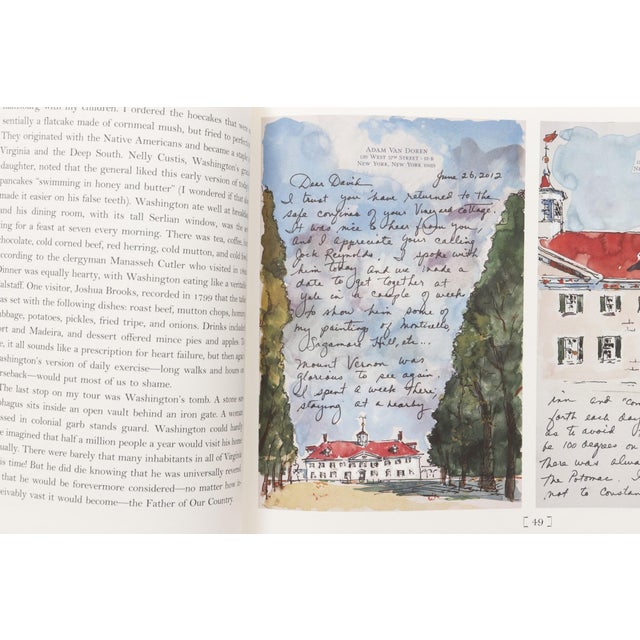 with my children. I ordered the hoecakes that were
sentially a flatcake made of cornmeal mush, but fried to perfec
They originated with the Native Americans and became a staple
Virginia and the Deep South. Nelly Custis, Washington's gran
daughter, noted that the general liked this early version of today
pancakes "swimming in honey and butter" (I wondered if that di
made it easier on his false teeth). Washington ate well at breakfa
and his dining room, with its tall Serlian window, was the se
ting for a feast at seven every morning. There was tea, coffee, ho
chocolate, cold corned beef, red herring, cold mutton, and cold fo
according to the clergyman Manasseh Cutler who visited in 180
Dinner was equally hearty, with Washington eating like a verita
Falstaff. One visitor, Joshua Brooks, recorded in 1799 that the tabl
as set with the following dishes: roast beef, mutton chops, homin
bbage, potatoes, pickles, fried tripe, and onions. Drinks include
ort and Madeira, and dessert offered mince pies and apples. To
e, it all sounds like a prescription for heart failure, but then again
ashington's version of daily exercise—long walks and hours on
rseback—would put most of us to shame.
The last stop on my tour was Washington's tomb. A stone sar
phagus sits inside an open vault behind an iron gate. A woman
essed in colonial garb stands guard. Washington could hardly
e imagined that half a million people a year would visit his home
ually. There were barely that many inhabitants in all of Virginia
is time! But he did die knowing that he was universally revered
that he would be forevermore considered—no matter how in
ceivably vast it would become—the Father of Our Country.
Adam Van Doren
West 12th Street
New York, New York 10011
June 26, 2012
Dear David,
I trust you have returned to the
safe confines of your Vineyard cottage.
It was nice to hear from you,
and I appreciate your calling
Jock Reynolds. I spoke with
him today and we made a
date to get together at
Yale in a couple of weeks
to show him some of
my paintings of Monticello,
Sagamore Hill, etc...
Mount Vernon was
glorious to see again.
I spent a week there,
staying at a nearby
inn and "com
forth each day
as to avoid
be 100 degrees on
There was alwa
The Potomac, I
not to Constan
[ 49 ]